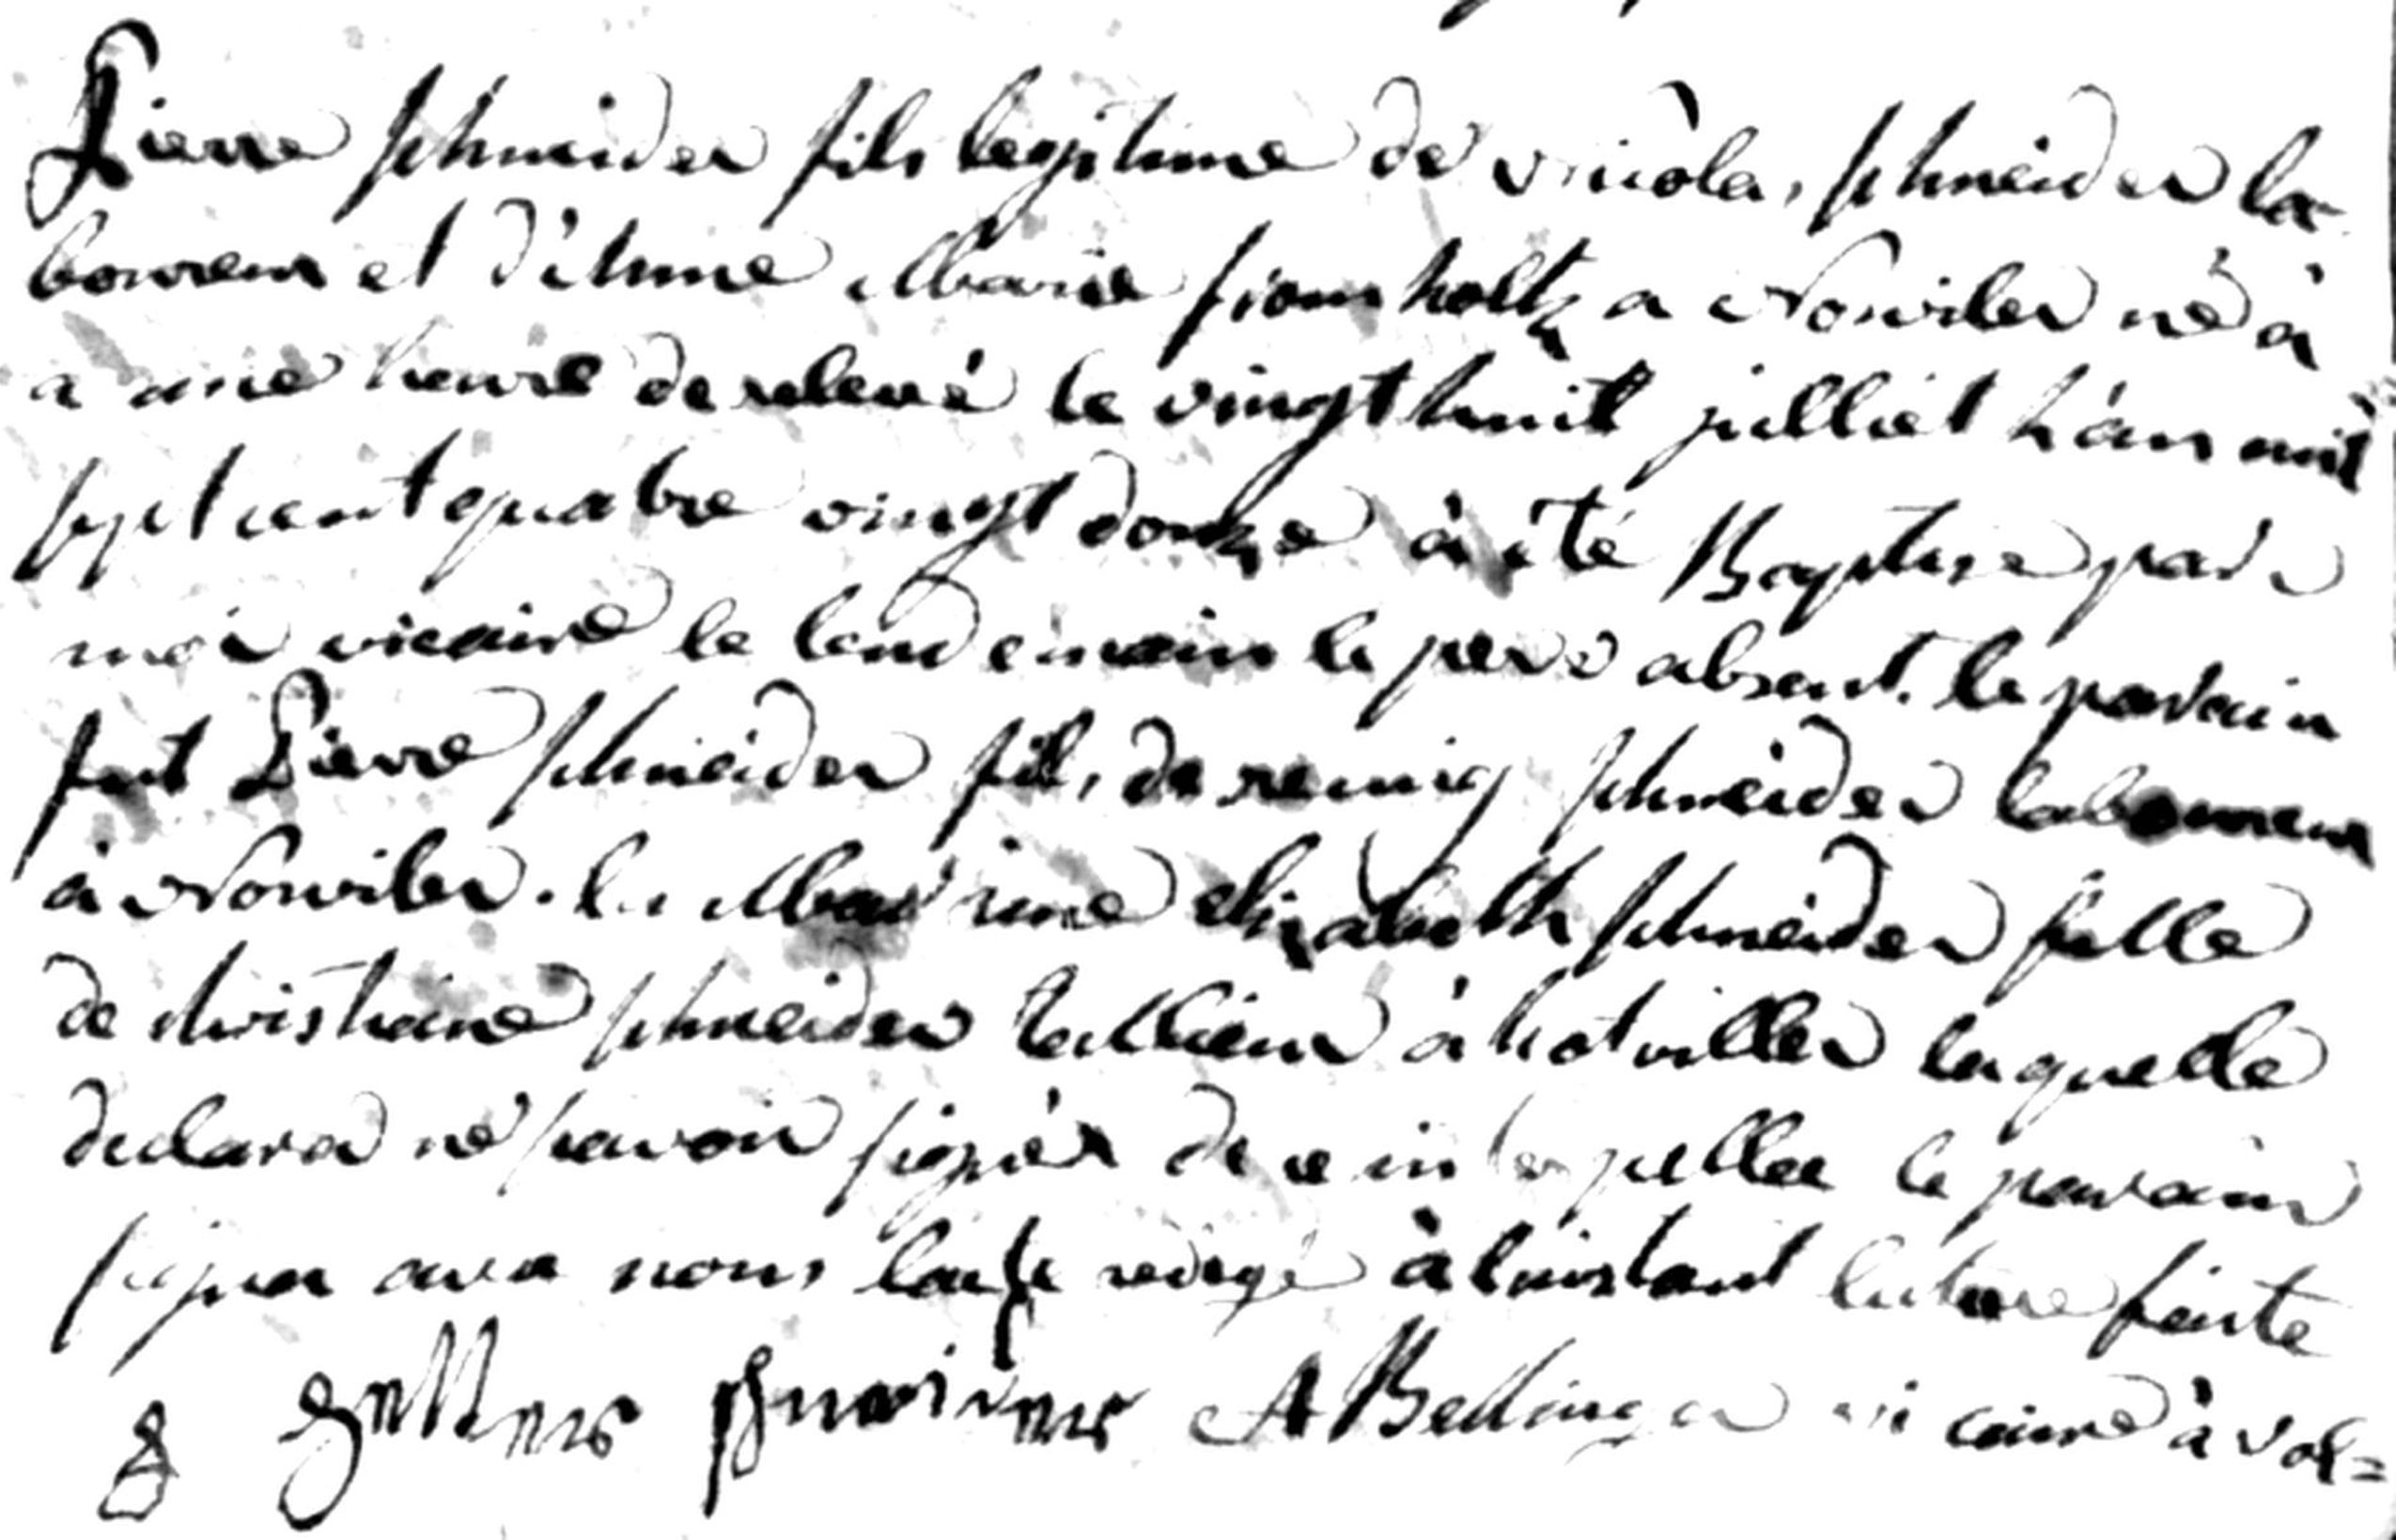 Pierre schneider fils legitime de nicolas schneider la-
boureur et d'Anne Marie fromholtz a Norviler né à
a une heure de relevé le vingt huit julliet l'an mil
sept cent quatre vingt douze à été Baptise par
moi vicaire le lendemain le pere absent. le parain
fut Pierre schneider fils de remig schneider laboureur
à Norviler. la Marine elizabeth schneider fille
de christiane schneider tallieur à hotviller laquelle
declara ne savoir signer de ce interpellee le parain
signa avec nous l'acte redigé à l'instant lecture faite
schneider A Bellinger vicaire à vol=